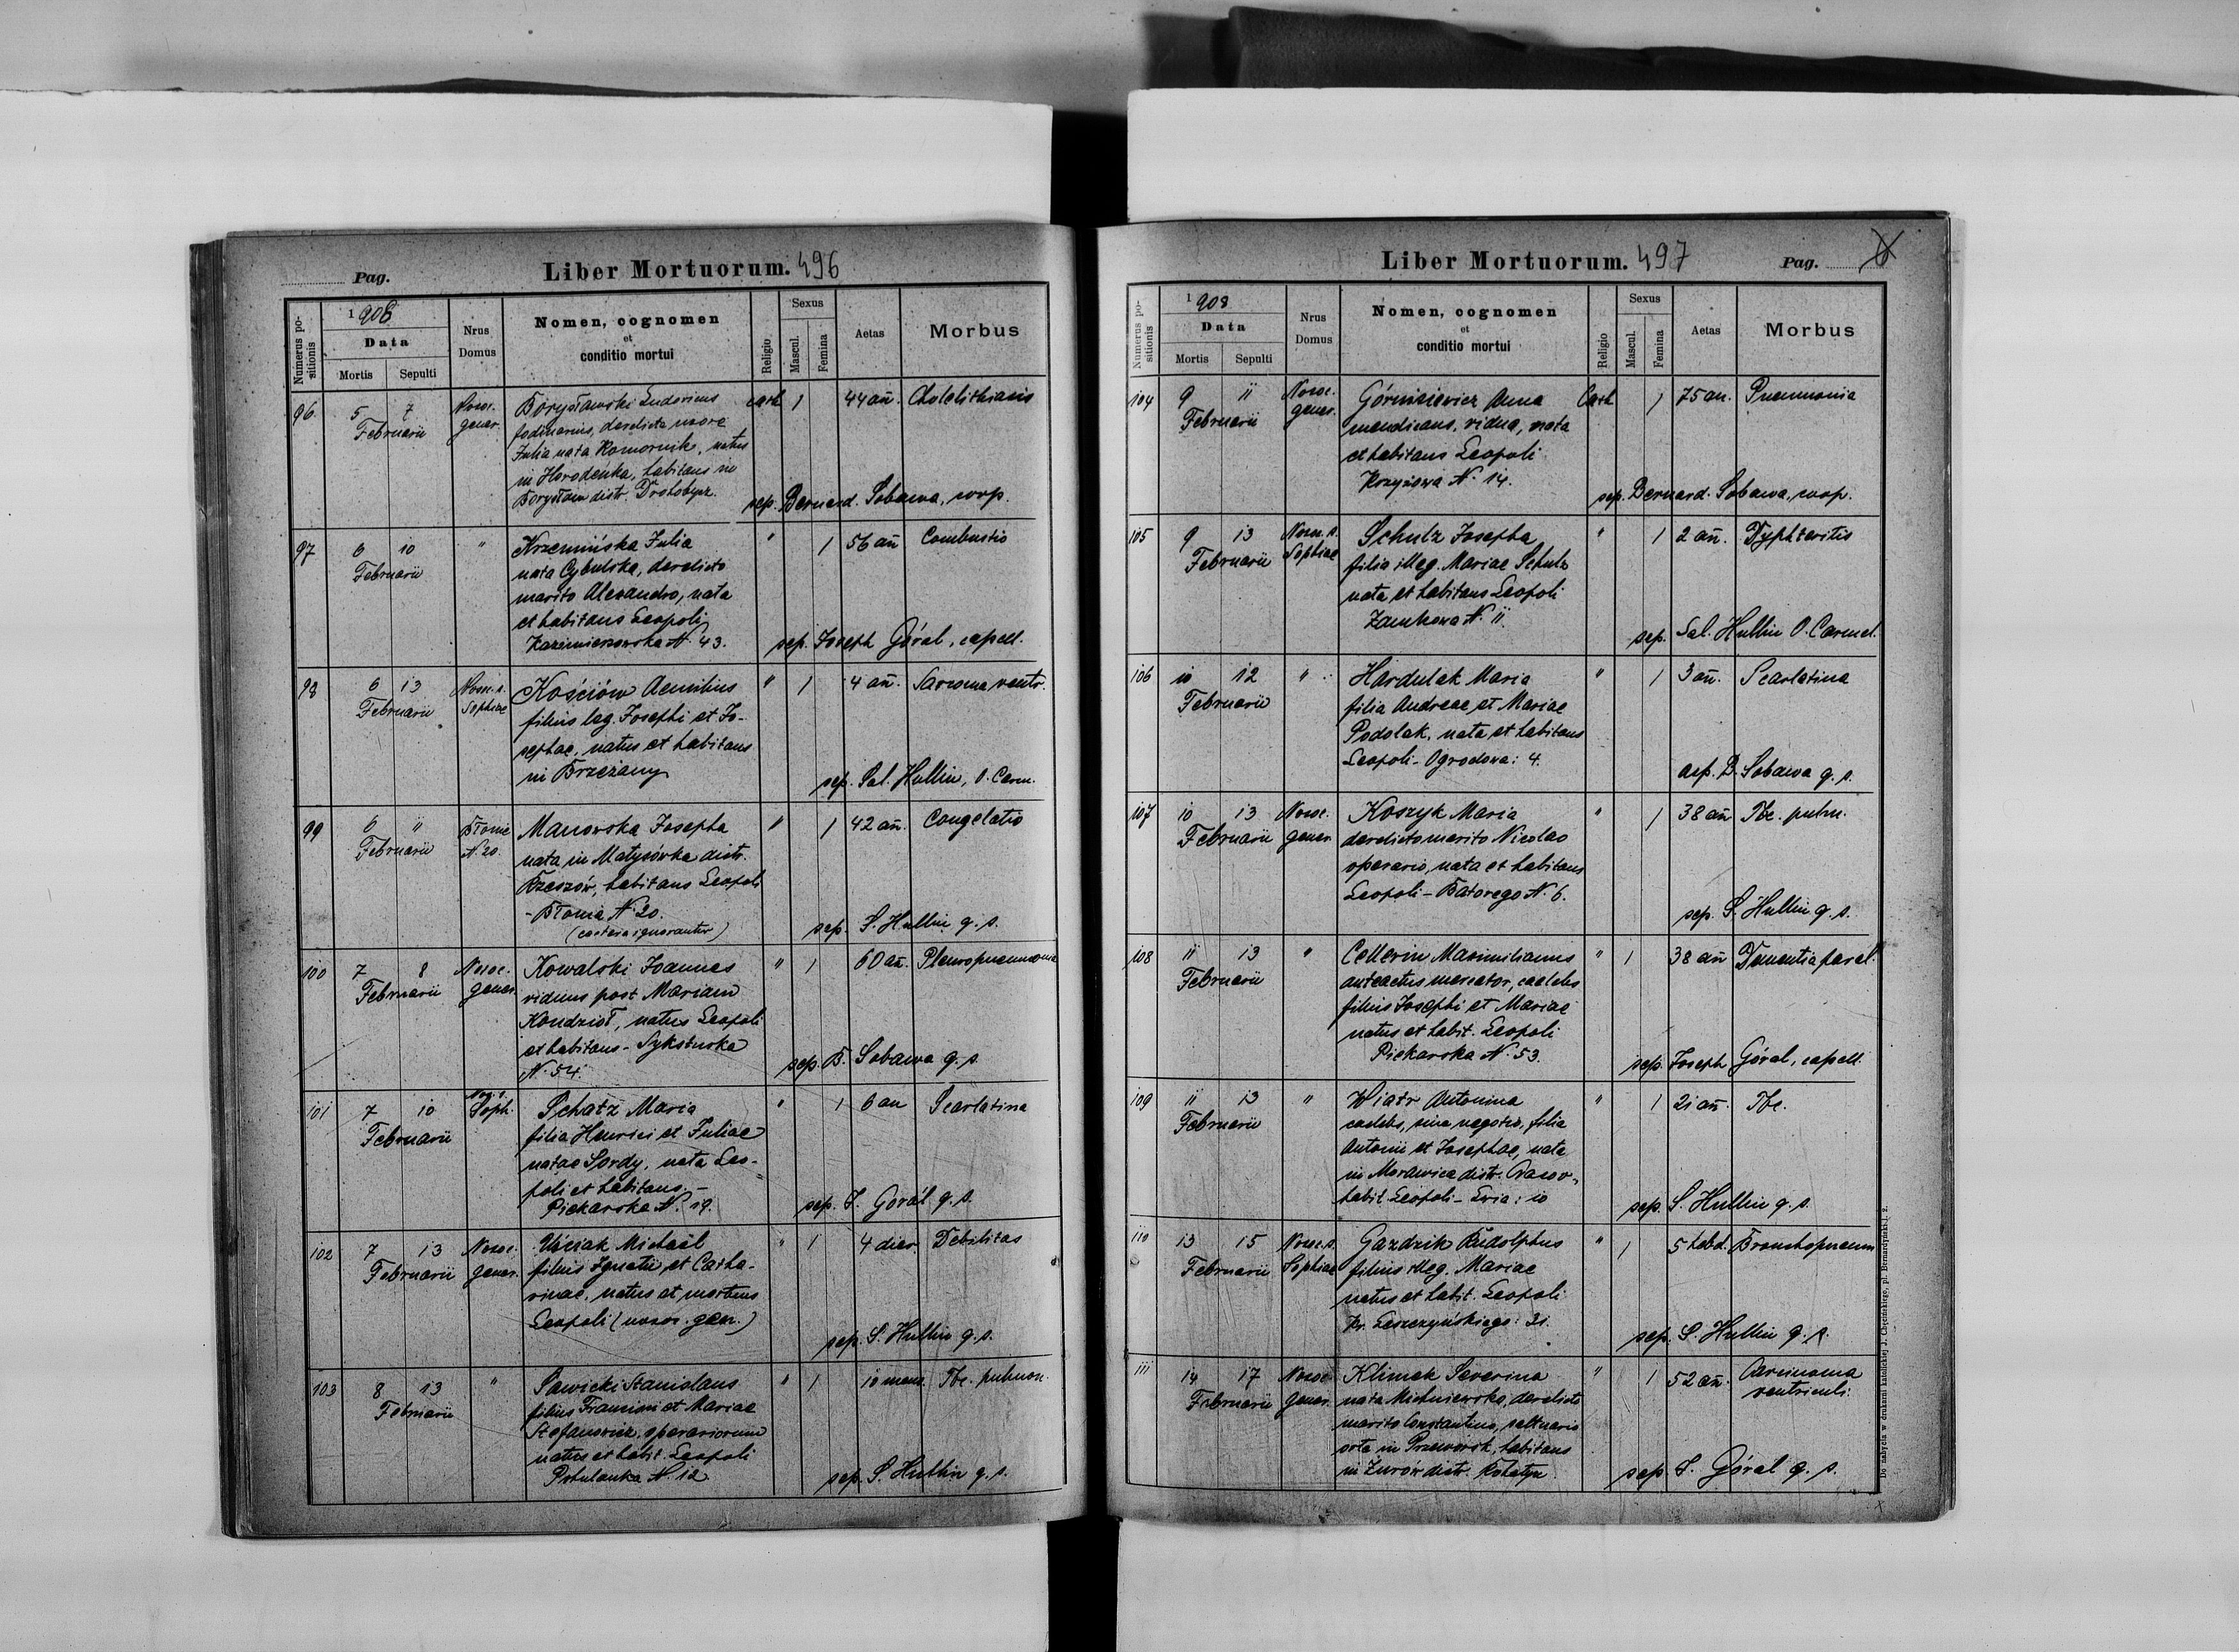 Pag.
Liber Mortuorum. 496
Numerus positionis
1908
Data
Mortis
Sepulti
Nrus Domus
Nomen, cognomen
et
conditio mortui
Religio
Sexus
Mascul.
Femina
Aetas
Morbus
96 5 7 Februarii Nosoc. gener. cath 1 44 añ. Cholelithiasis
Borysławski Ludovicus
fodinarius, derelicta uxore
Julia nata Komornik, natus
in Horodenka, habitans in
Borysław distr. Drohobycz.
sep. Bernard. Sobawa, coop.
97 6 10 Februarii " " 1 56 añ Combustio
Krzemińska Julia
nata Cybulska, derelicto
marito Alexandro, nata
et habitans Leopoli
Kazimierzowska N. 43.
sep. Joseph Góral, capell.
98 6 13 Februarii Nosoc. s. Sophiae " 1 4 añ. Sarcoma ventr.
Kościów Aemilius
filius leg. Josephi et Jo-
sephae, natus et habitans
in Brzeżany
sep. Sal. Hullin, O. Carm.
99 6 11 Februarii Błonie N. 20. " 1 42 añ. Congelatio
Manowska Josepha
nata in Matysówka distr.
Rzeszów, habitans Leopoli
- Błonia N. 20.
(caetera ignorantur)
sep. S. Hullin q. s.
100 7 8 Februarii Nosoc. gener. " 1 60 añ. Pleuropneumonia
Kowalski Joannes
viduus post Mariam
Kondzioł, natus Leopoli
et habitans - Sykstuska
N. 54.
sep. B. Sobawa q. s.
101 7 10 Februarii Nos. s. Soph. " 1 6 an Scarlatina
Schatz Maria
filia Henrici et Juliae
natae Sordy, nata Leo-
poli et habitans. -
Piekarska N. 19.
sep. J. Goral q. s.
102 7 13 Februarii Nosoc. gener. " 1 4 dier. Debilitas
Uściak Michaël
filius Ignatii et Catha-
rinae, natus et mortuus
Leopoli (nosoc. gen.)
sep. S. Hullin q. s.
103 8 13 Februarii " " 1 10 mens. Tbc. pulmon.
Sawicki Stanislaus
filius Francisci et Mariae
Stefanowicz, operariorum
natus et habit. Leopoli
Pohulanka N. 12
sep. S. Hullin q. s.
Liber Mortuorum. 497
Pag.
Numerus positionis
1908
Data
Mortis
Sepulti
Nrus Domus
Nomen, cognomen
et
conditio mortui
Religio
Sexus
Mascul.
Femina
Aetas
Morbus
104 9 11 Februarii Nosoc. gener. Cath 1 75 an. Pneumonia
Górnisiewicz Anna
mendicans, vidua, nata
et habitans Leopoli
Krzyżowa N. 14.
sep. Bernard. Sobawa, coop.
105 9 13 Februarii Nosoc. s. Sophiae " 1 2 añ. Dyphteritis
Schulz Josepha
filia illeg. Mariae Schulz
nata et habitans Leopoli
Zamkowa N. 11.
sep. Sal. Hullin O. Carmel.
106 10 12 Februarii " " 1 3 añ. Scarlatina
Hardulak Maria
filia Andreae et Mariae
Podolak, nata et habitans
Leopoli - Ogrodowa: 4.
sep. B. Sobawa q. s.
107 10 13 Februarii Nosoc. gener. " 1 38 añ Tbc. pulm.
Koszyk Maria
derelicto marito Nicolao
operario, nata et habitans
Leopoli - Batorego N. 6.
sep. S. Hullin q. s.
108 11 13 Februarii " " 1 38 añ Dementia paral.
Cellerin Maximilianus
anteactus mercator, caelebs
filius Josephi et Mariae
natus et habit. Leopoli
Piekarska N. 53.
sep. Joseph Góral, capell.
109 11 13 Februarii " " 1 21 añ. Tbc.
Wiatr Antonina
caelebs, sine negotio, filia
Antonii et Josephae, nata
in Morawica distr. Cracov.
habit. Leopoli - Lwia: 10
sep. S. Hullin q. s.
110 13 15 Februarii Nosoc. s. Sophiae " 1 5 hebd. Bronchopneum
Gazdzik Rudolphus
filius illeg. Mariae
natus et habit. Leopoli
Kr. Leszczyńskiego: 31.
sep. S. Hullin q. s.
111 14 17 Februarii Nosoc. gener. " 1 52 añ. Carcinoma ventriculi
Klimek Severina
nata Michniewska, derelicto
marito Constantino, saltuario
orta in Przeworsk, habitans
in Żurów distr. Rohatyn
sep. J. Góral q. s.
Do nabycia w drukarni katolickiej J. Chęcińskiego, pl. Bernardyński l. 2.